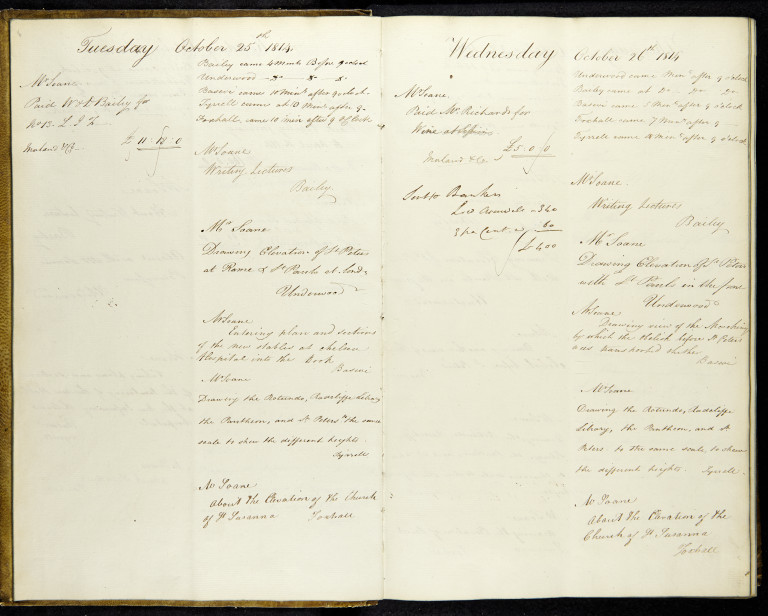 Tuesday October 25th 1814
Mr Soane
Paid W & A Bailey for
No 13. L. I. F.
£ 11 : 18 : 0
Bailey came 4 minuts Before 9 oclock
Underwood do do do
Basevi came 10 mints after 9 o'clock
Tyrrell came at 10 Mints after 9
Foxhall came 10 min after 9 o'Clock
Mr Soane
Writing Lectures
Bailey
Mr Soane
Drawing Elevation of St Peters
at Rome & St Pauls at Lond
Underwood
Mr Soane
Entering plan and sections
of the new stables at Chelsea
Hospital into the Book
Basevi
Mr Soane
Drawing the Rotundo, Radcliffe Library
the Pantheon, and St Peters to the same
scale to shew the different heights.
Tyrrell
Mr Soane
About the Elevation of the Church
of St Susanna Foxhall
Wednesday October 26th 1814
Mr Soane
Paid Mr Richards for
Wine
£5 : 0 : 0
Bankers
340
3 per Cent 60
£400
Underwood came Mints after 9 o'clock
Bailey came at do do do
Basevi came 5 Mints after 9 o'clock
Foxhall came 7 Mints after 9
Tyrrell came Mints after 9 o'clock
Mr Soane
Writing Lectures
Bailey
Mr Soane
Drawing Elevation of St Peters
with St Pauls in the same
Underwood
Mr Soane
Drawing view of the Machine
by which the Obelisk before St Peters
was transported thither
Basevi
Mr Soane
Drawing the Rotundo, Radcliffe
Library, the Pantheon, and St
Peters to the same scale, to shew
the different heights. Tyrrell
Mr Soane
About the Elevation of the
Church of St Susanna
Foxhall